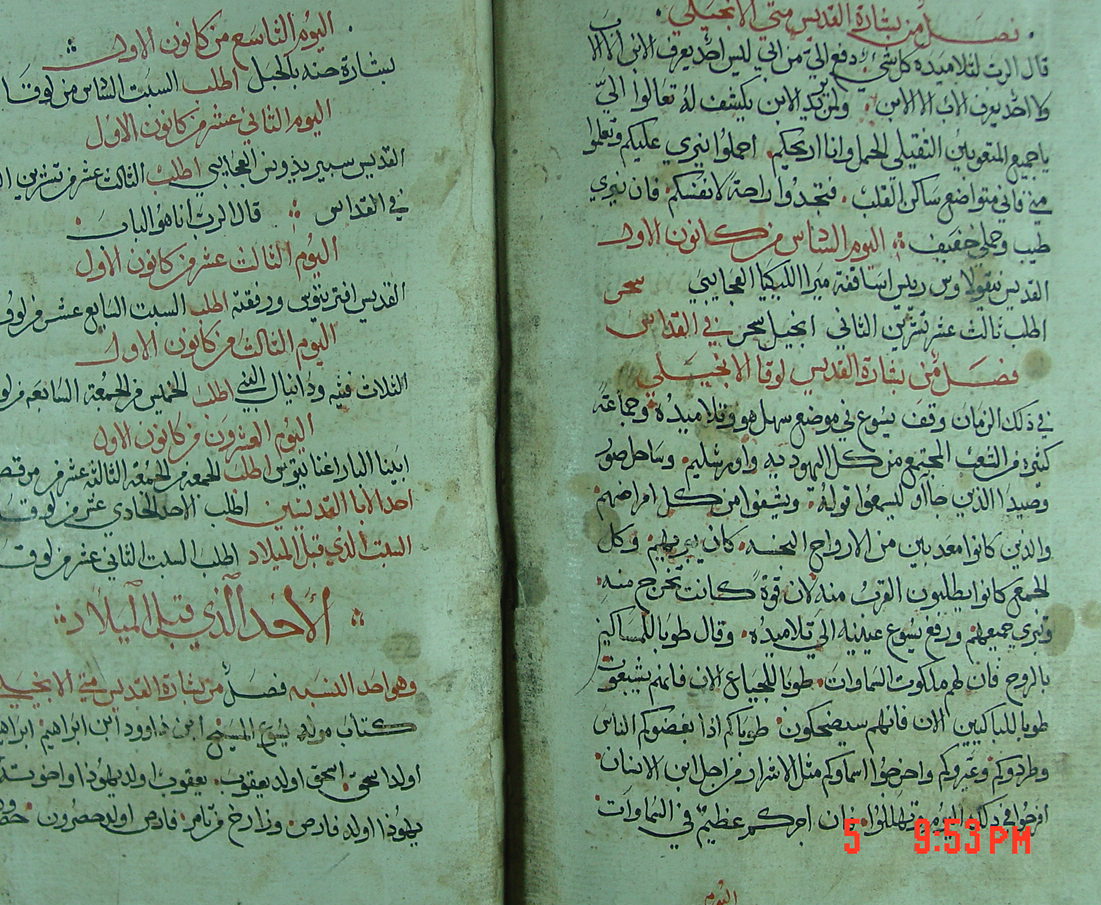 فصل من بشارة القديس متى الانجيلي
قال الرب لتلاميذه كل شي دفع الي من ابي ليس احد يعرف الابن الا الاب
ولا احد يعرف الاب الا الابن ولمن يريد الابن يكشف له تعالوا الي
يا جميع المتعوبين الثقيلي الحمل وانا اريحكم احملوا نيري عليكم وتعلموا
مني فاني متواضع ساكن القلب فتجدوا راحة لانفسكم فان نيري
طيب وحملي خفيف اليوم السادس من كانون الاول
القديس نيقولاوس ريس اساقفة ميرا الليكيا العجايبي سحر
اطلب ثالث عشر تشرين الثاني انجيل سحر في القداس
فصل من بشارة القديس لوقا الانجيلي
في ذلك الزمان وقف يسوع في موضع سهل هو وتلاميذه وجماعة
كثيرة من الشعب المجتمع من كل اليهودية واورشليم وساحل صور
وصيدا الذين جااو ليسمعوا قوله ويشفوا من كل امراضهم
والذين كانوا معدبين من الارواح النجسه كان يبريهم وكل
الجمع كانوا يطلبون القرب منه لان قوة كانت تخرج منه
وتبري جميعهم ورفع يسوع عينيه الي تلاميذه وقال طوبا للمساكين
بالروح فان لهم ملكوت السماوات طوبا للجياع الان فانهم يشبعون
طوبا للباكيين الان فانهم سيضحكون طوباكم اذا بغضوكم الناس
وطردوكم وعيروكم واخرجوا اسماوكم مثل الاشرار من اجل ابن الانسان
افرحوا في ذلك اليوم وتهللوا فان اجركم عظيم في السماوات
اليوم
5 9:53 PM
اليوم التاسع من كانون الاول
بشارة حنه بالحبل اطلب السبت السادس من لوقا
اليوم الثاني عشر من كانون الاول
القديس سبيريذونس العجايبي اطلب الثالث عشر من تشرين
في القداس قال الرب انا هو الباب
اليوم الثالث عشر من كانون الاول
القديس افتريتوس ورفقته اطلب السبت السابع عشر من لوقا
اليوم الثالث من كانون الاول
الثلات فتيه ودانيال النبي اطلب الخميس من الجمعة السابعه من
اليوم العشرون من كانون الاول
ابينا البار اغناتيوس اطلب الجمعه من الجمعة الثالثة عشر من
احد الابا القديسين اطلب الاحد الحادي عشر من لوقا
السبت الذي قبل الميلاد اطلب السبت الثاني عشر من لوقا
الاحد الذي قبل الميلاد
وهو احد النسبه فصل من بشارة القديس متي الانجيلي
كتاب مولد يسوع المسيح ابن داوود ابن ابراهيم
اولد اسحق اسحق اولد يعقوب يعقوب اولد يهوذا واخوته
يهوذا اولد فارص وزارح من تامر فارص اولد حصرون